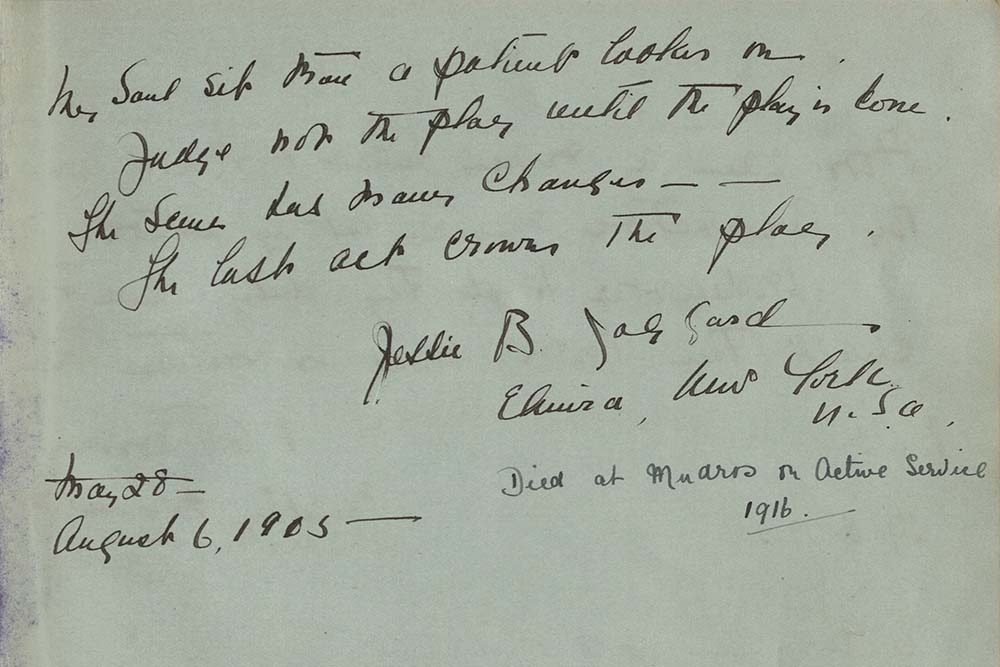 My Soul sit thou a patient looker on.
Judge not the play until the play is done.
The Scene has many Changes — —
The last act crowns the play.
Jessie B. Jaggard
Elmira, New York.
U.S.a,
May 28 —
August 6, 1905 —
Died at Mudros on Active Service
1916.